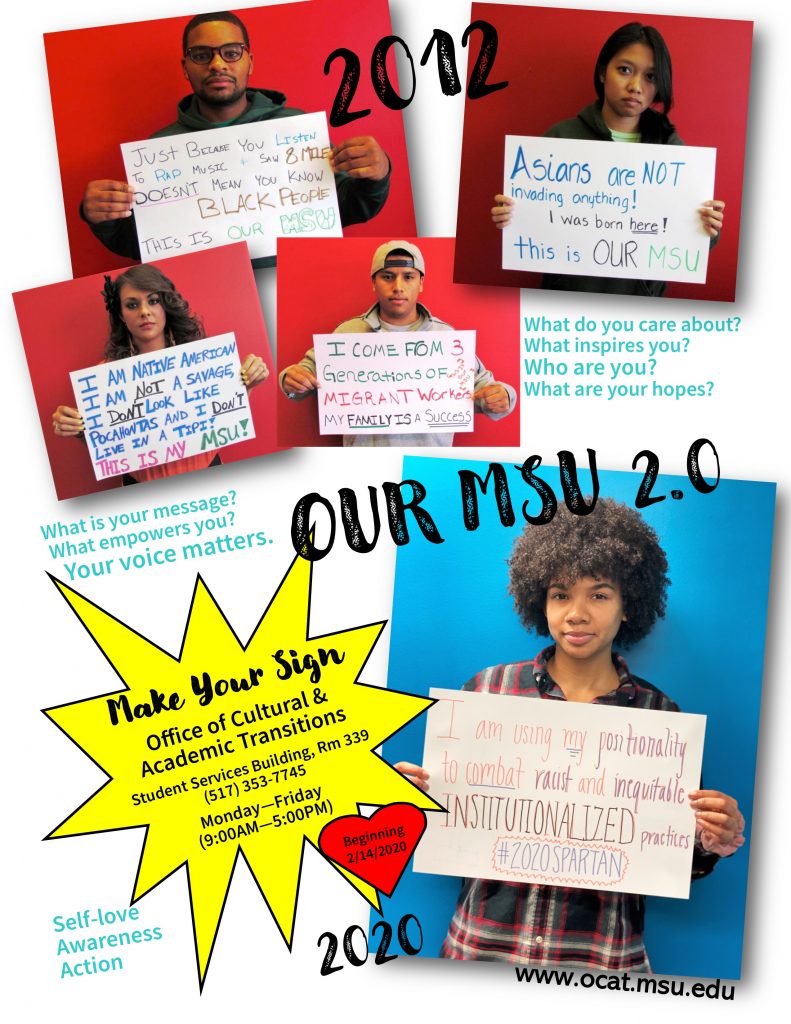 2012
JUST BECAUSE YOU LISTEN
TO RAP MUSIC + SAW 8 MILE
DOESN'T MEAN YOU KNOW
BLACK PEOPLE
THIS IS OUR MSU
Asians are NOT
invading anything!
I was born here!
this is OUR MSU
I AM NATIVE AMERICAN
I AM NOT A SAVAGE,
I DON'T LOOK LIKE
POCAHONTAS AND I DON'T
LIVE IN A TIPI!
THIS IS MY MSU!
I COME FROM 3
Generations OF
MIGRANT Workers
MY FAMILY IS A SUCCESS
What do you care about?
What inspires you?
Who are you?
What are your hopes?
OUR MSU 2.0
What is your message?
What empowers you?
Your voice matters.
Make Your Sign
Office of Cultural &
Academic Transitions
Student Services Building, Rm 339
(517) 353-7745
Monday—Friday
(9:00AM—5:00PM)
Beginning
2/14/2020
I am using my positionality
to combat racist and inequitable
INSTITUTIONALIZED practices
#2020SPARTAN
Self-love
Awareness
Action
2020
www.ocat.msu.edu